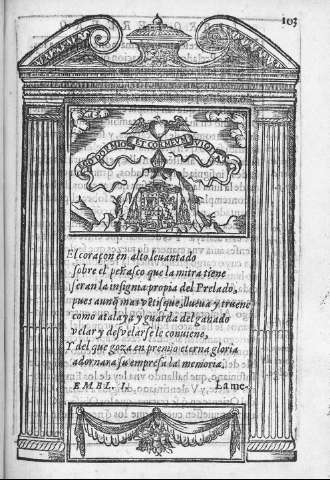 103
EGO DORMIO ET COR MEVM VIGILAT
El coraçon en alto leuantado
sobre el peñasco que la mitra tiene
seran la insignia propia del Prelado,
pues aunq̃ mas vẽtisque, llueua y truene
como atalaya y guarda del ganado
velar y desvelarse le conuiene,
Y del que goza en premio eterna gloria
adornara su empresa la memoria.
EMBL. I. La me-